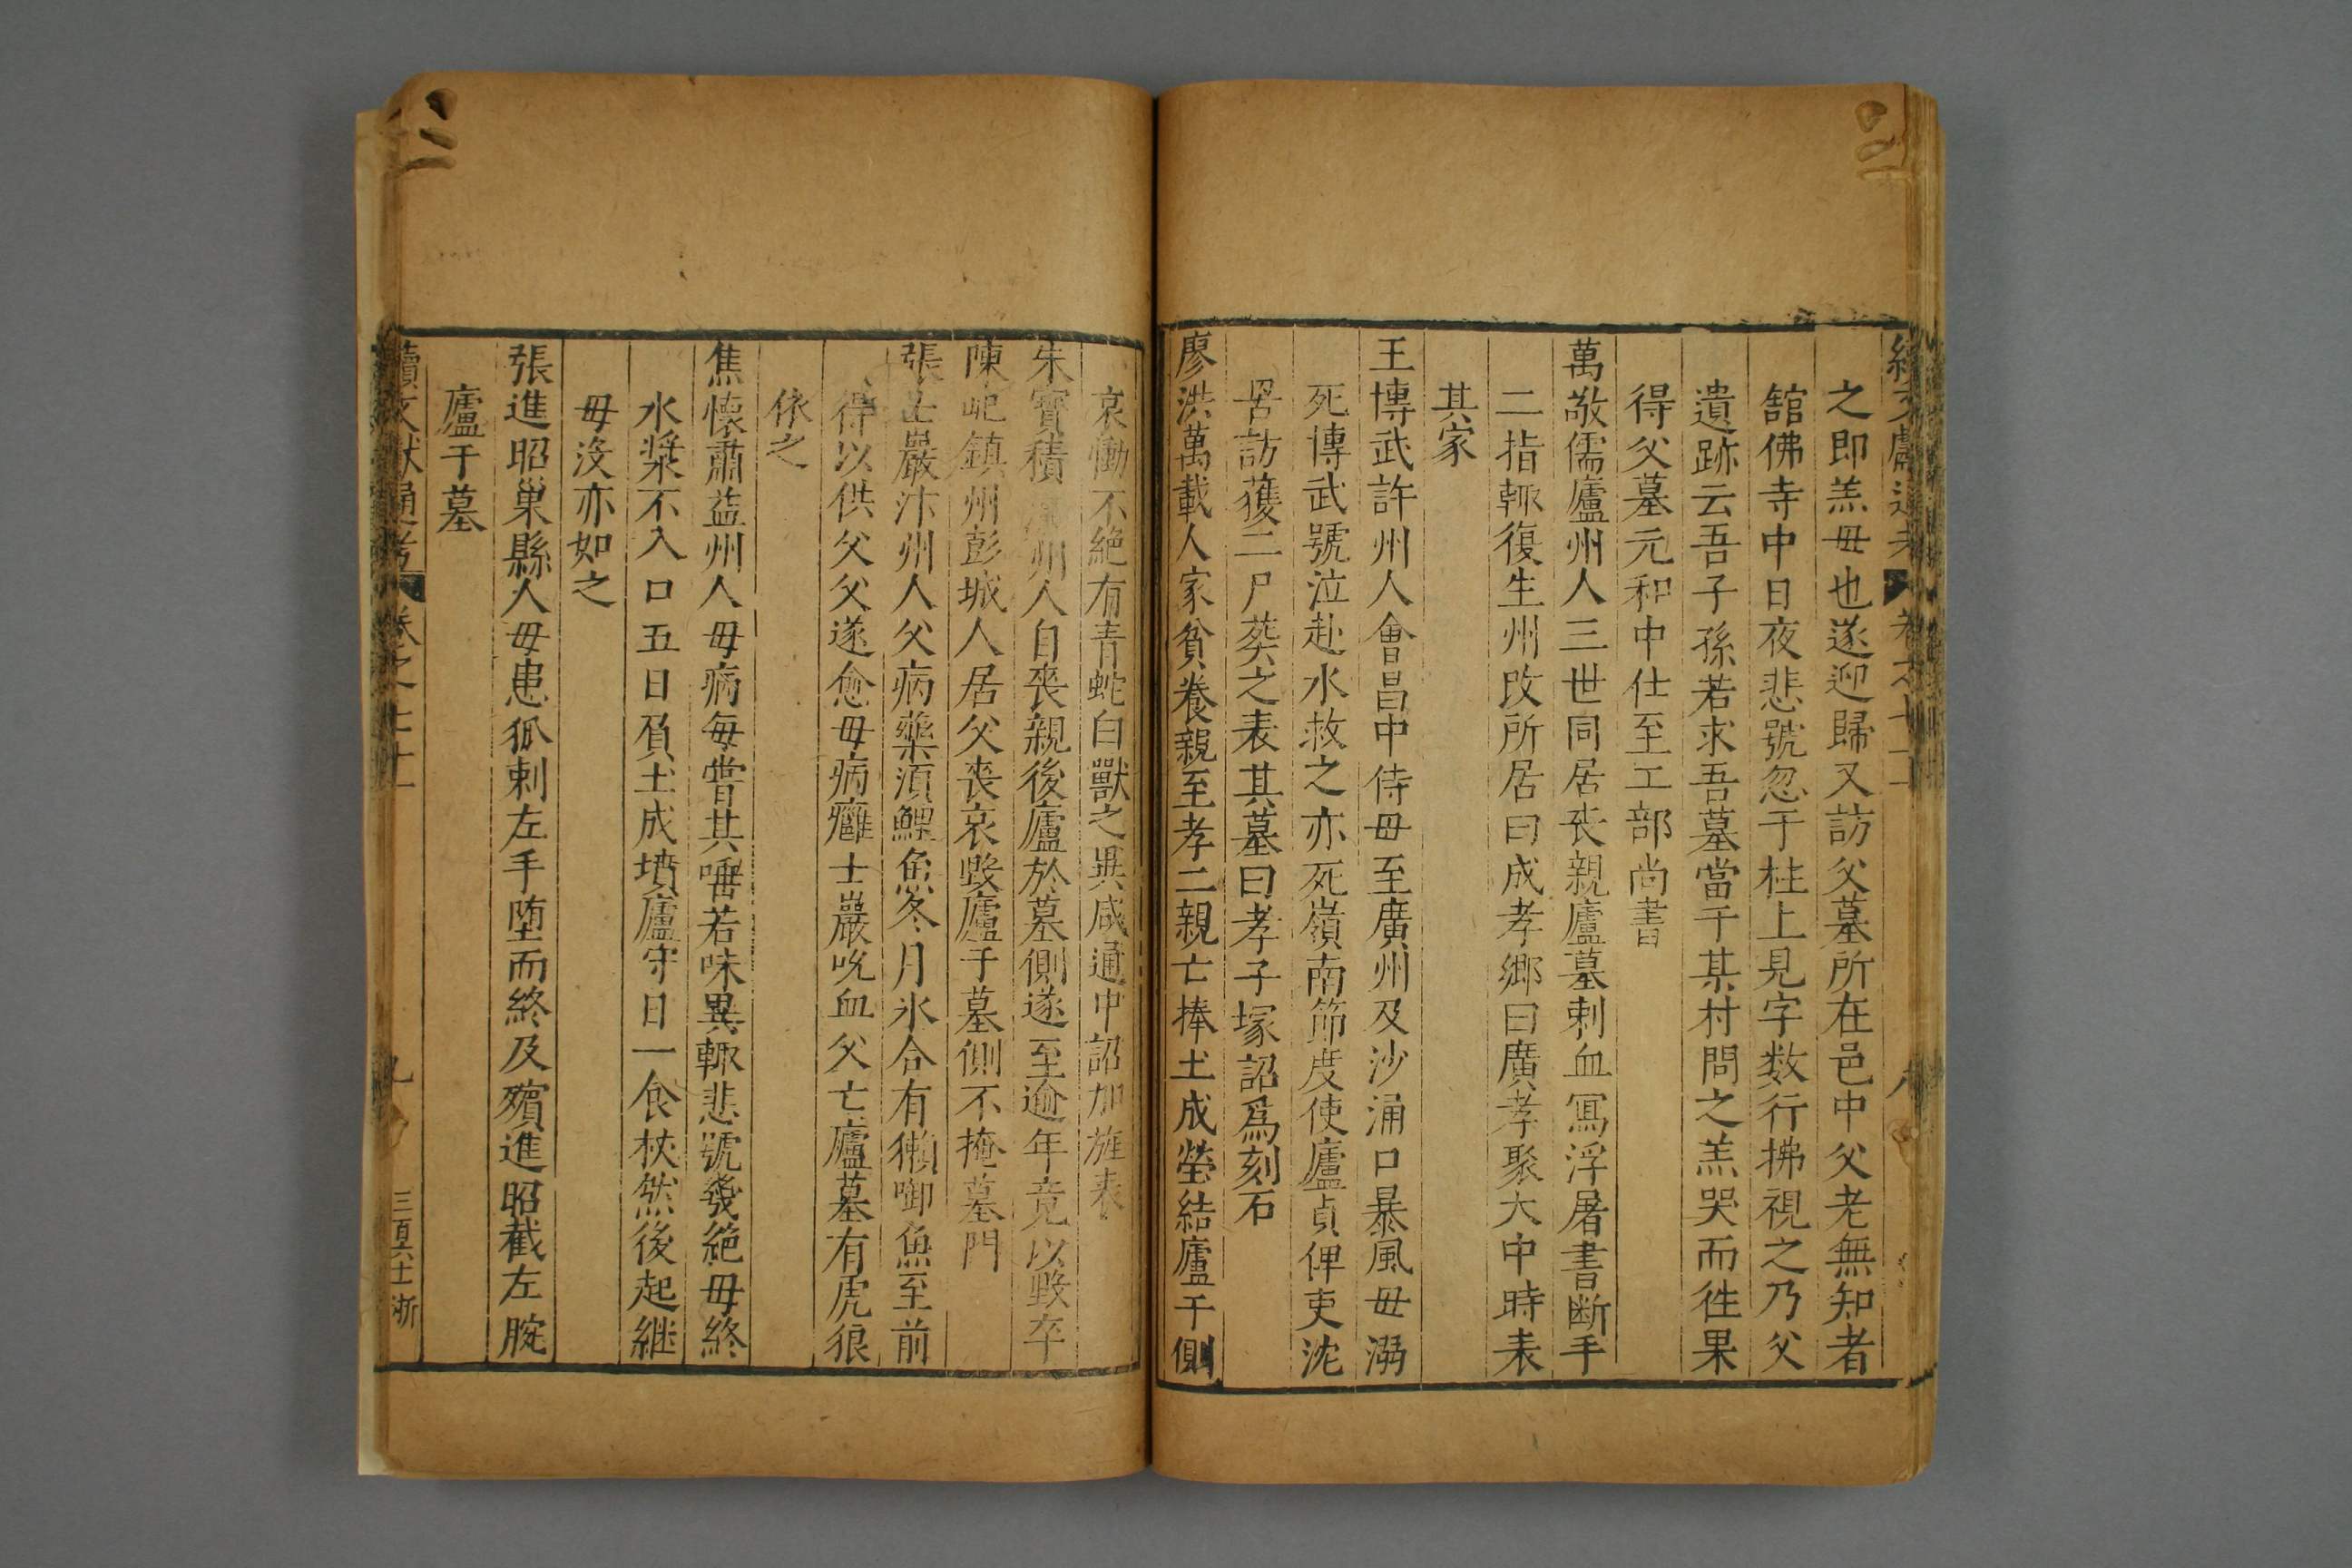 之即羔毋也遂迎歸又訪父墓所在邑中父老無知者
舘佛寺中日夜悲號忽于柱上見字数行拂視之乃父
遺跡云吾子孫若求吾墓當于某村問之羔哭而徃果
得父墓元和中仕至工部尚書
萬敬儒廬州人三世同居喪親廬墓刺血冩浮屠書断手
二指輙復生州改所居曰成孝鄉曰廣孝聚大中時表
其家
王博武許州人會昌中侍毋至廣州及沙涌口暴風毋溺
死博武號泣赴水救之亦死嶺南節度使廬貞俾吏沈
罟訪獲二尸葬之表其墓曰孝子塚詔爲刻石
廖洪萬載人家貧養親至孝二親亡捧土成塋結廬于側
哀慟不絶有青蛇白獸之異咸通中詔加旌表
朱寶積 州人自喪親後廬於墓側遂至逾年竟以毀卒
陳屺鎮州彭城人居父喪哀毀廬于墓側不掩墓門
張士巖汴州人父病藥湏鯉魚冬月氷合有獺啣魚至前
得以供父父遂愈毋病癰士巖吮血父亡廬墓有虎狼
依之
焦懷肅益州人毋病每嘗其唾若味異輙悲號幾絶毋終
水漿不入口五日負土成墳廬守日一食杖然後起継
毋沒亦如之
張進昭巢縣人毋患狐刺左手堕而終及殯進昭截左腕
廬于墓
續文献通考 卷之七十一 九 三百六十 浙